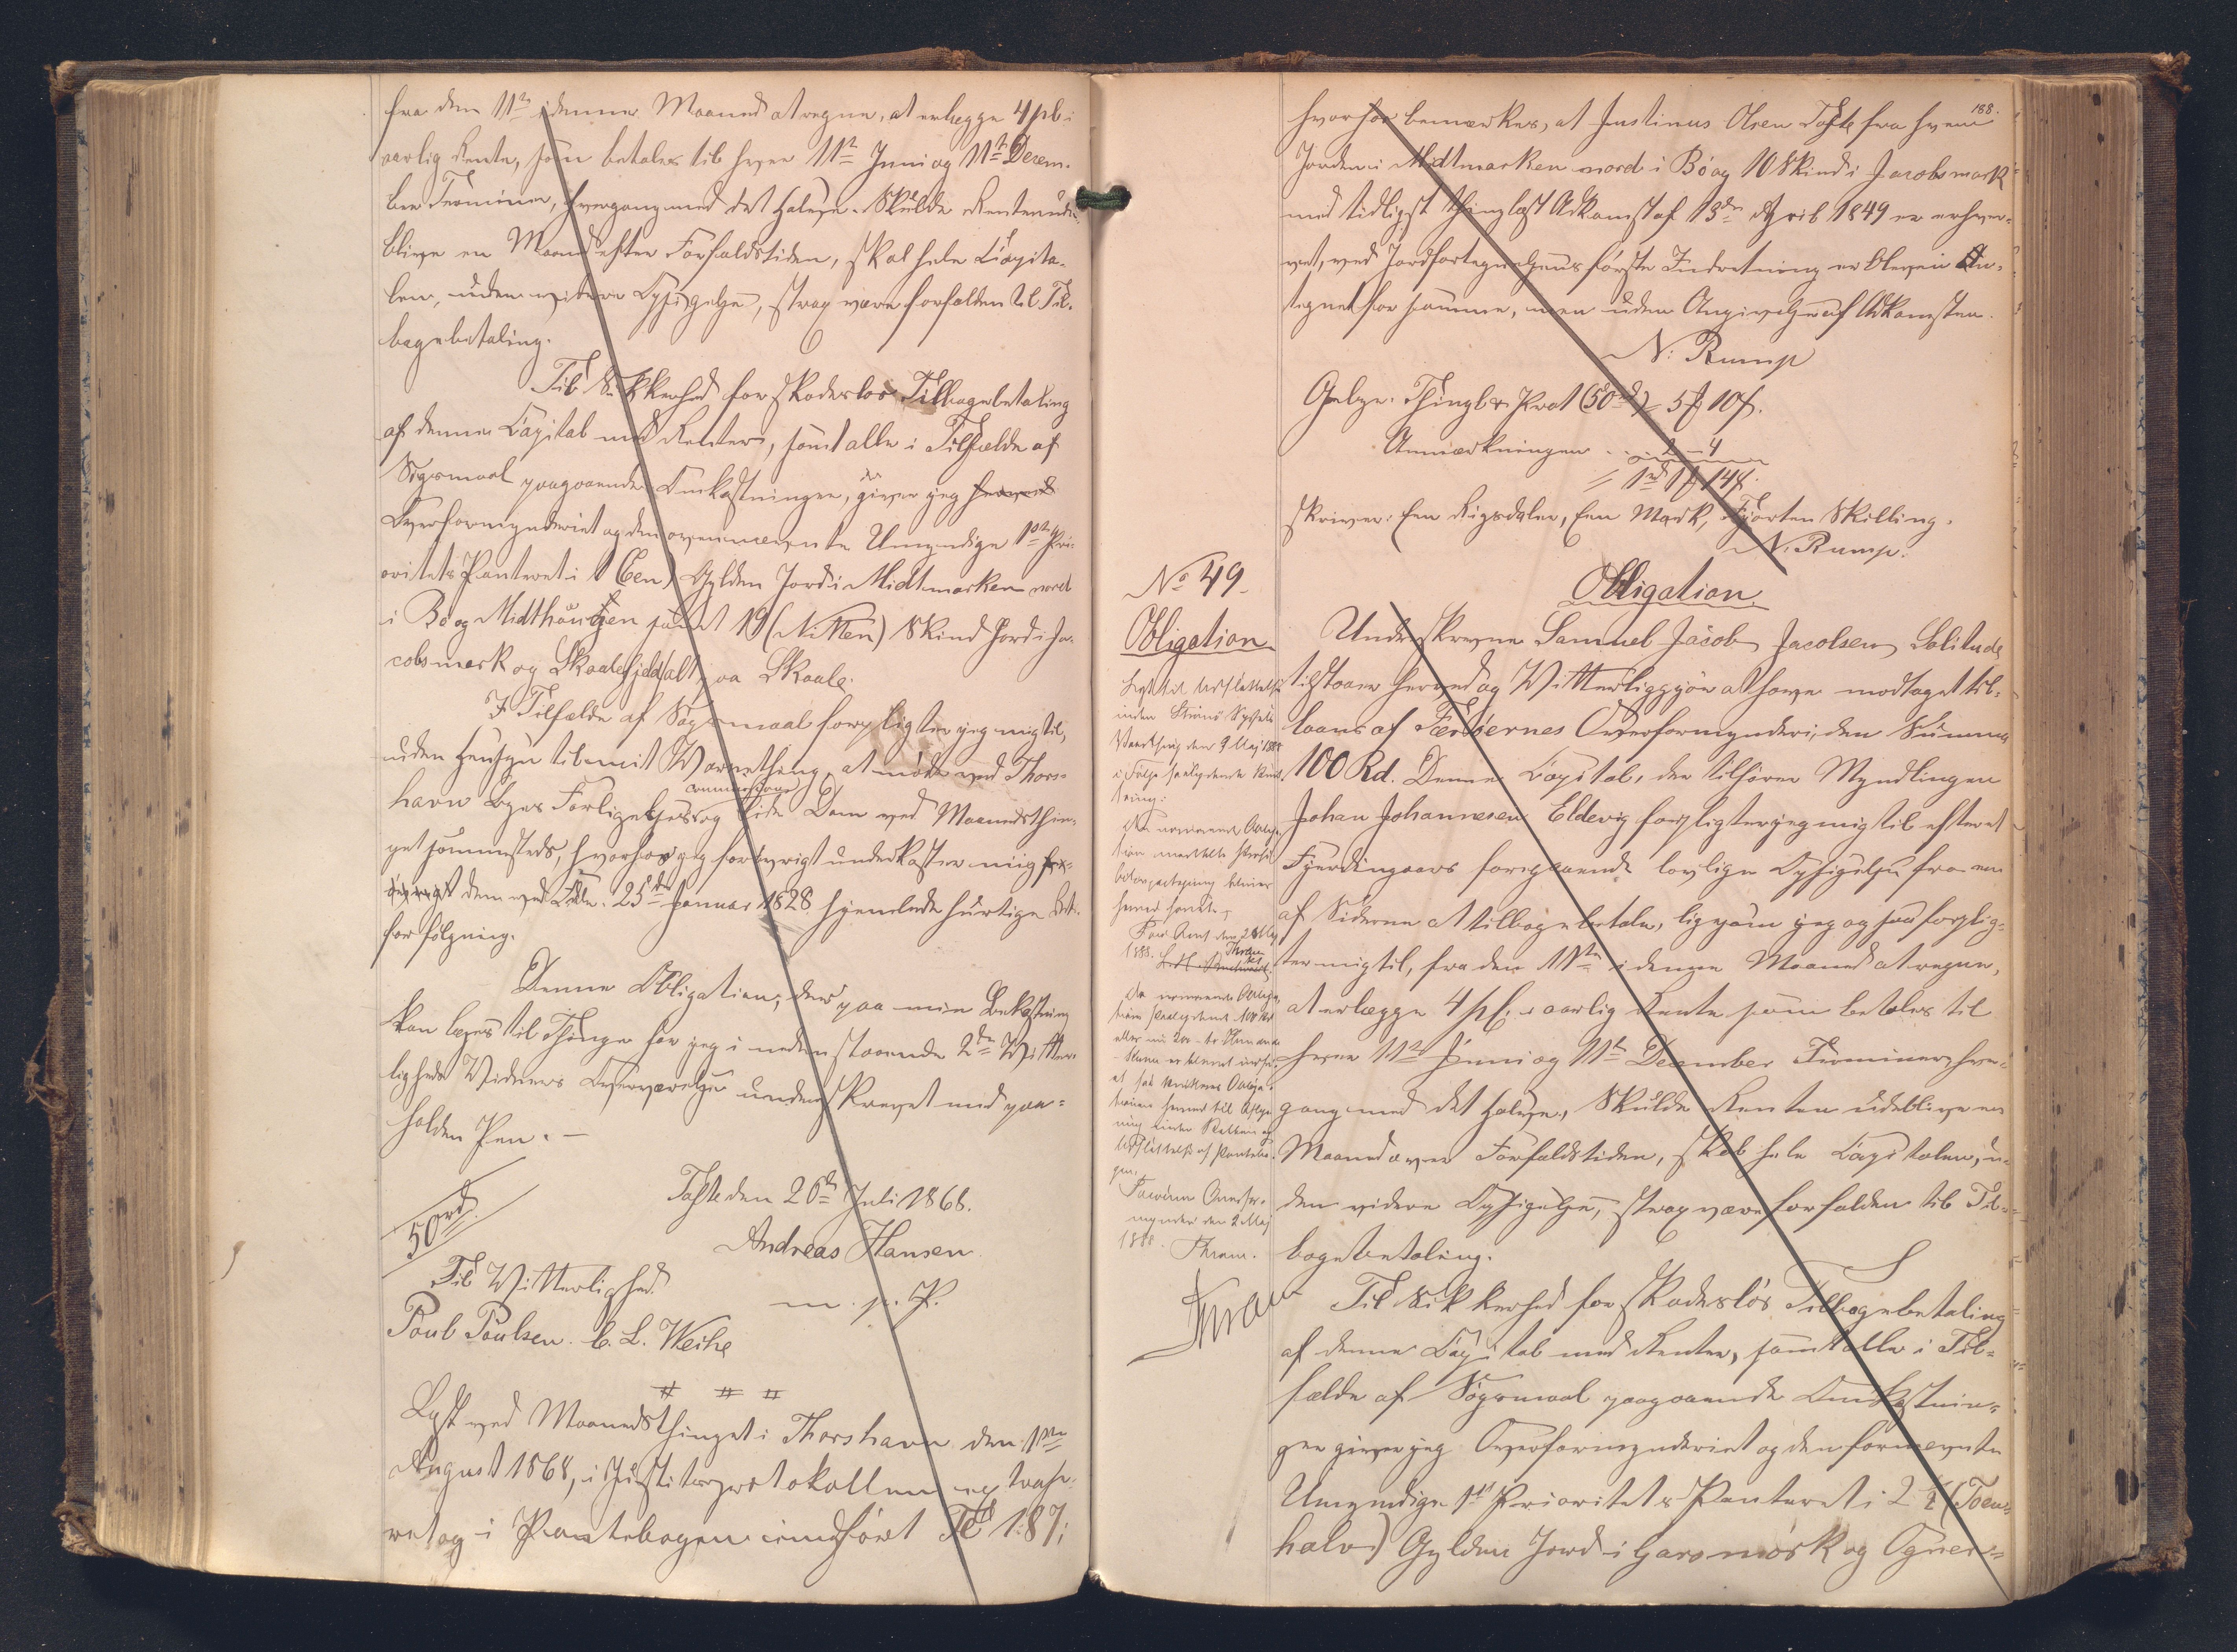 fra den 11te i denne Maaned at regne, at erlægge 4 pCt i
aarlig Rente, som betales til hver 11te Juni og 11te Decem-
ber Termin, hvergang med det halve. Skulde Renten ude-
blive en Maaned efter Forfaldstiden, skal hele Capita-
len, uden videre Opsigelse, strax være forfalden til Til-
bagebetaling.
Til Sikkerhed for skadesløs Tilbagebetaling
af denne Capital med Renter, samt alle i Tilfælde af
Søgsmaal paagaaende Omkostninger, giver jeg herved
Overformynderiet og den ovennævnte Umyndige 1ste Pri-
oritets Panteret i 1 (Een) Gylden Jord i Midtmarken nord
i Bø og Midthaugen samt 19 (Nitten) Skind Jord i Ja-
cobsmark og Skaalefjeld, alt paa Skaale.
I Tilfælde af Søgsmaal forpligter jeg mig til,
uden Hensyn til mit Værnething, at møde ved Thors-
havn Byes Forligelsescommission og lide Dom ved Maanedsthin-
get sammesteds, hvorhos jeg forøvrigt underkaster mig
den ved Fdn. 25de Januar 1828 hjemlede hurtige Rets-
forfølgning.
Denne Obligation, der paa min Bekostning
kan læses til Thinge har jeg i nedenstaaende 2de Vitter-
ligheds Vidners Overværelse underskrevet med paa-
holden Pen. –
50 rd.
Tofte den 26de Juli 1868.
Andreas Hansen
m. p. P.
Til Vitterlighed
Poul Poulsen. C. L. Weihe
# # #
Læst ved Maanedsthinget i Thorshavn den 1ste
August 1868, i Justitsprotokollen extrahe-
ret og i Pantebogen indført Fol 187;
188.
hvorhos bemærkes, at Justinus Olsen Tofte fra hvem
Jorden i Midtmarken nord i Bø og 10 Skind i Jacobsmark
med tidligst thinglæst Adkomst af 13de April 1849 er erhver-
vet, ved Jordfortegnelsens første Indretning er bleven An-
tegnet for samme, men uden Angivelse af Adkomsten.
N: Rump
Gebyr. Thingl. & Prot (50 rd) = 5 ₻ 10 ß.
Anmærkningen . . . 2 – 4
= 1 rd 1 ₻ 14 ß.
skriver: Een Rigsdaler, Een Mark, Fjorten Skilling.
N. Rump.
No 49.
Obligation.
Læst til Udslettelse
inden Strømø Syssels
Vaarthing den 9 Maj 1888
i Følge saalydende Kvit-
tering:
Fær Amt den 2 Maj
1888.
Færøernes Overfor-
mynderi den 2 Maj
1888.
Obligation.
Underskrevne Samuel Jacob Jacobsen, Solitude
tilstaaer herved og Vitterliggjør at have modtaget til-
laans af Færøernes Overformynderi, den Summa
100 Rd. Denne Capital, der tilhører Myndlingen
Johan Johannesen Eldevig forpligter jeg mig til efter et
Fjerdingaars foregaaende lovlige Opsigelse fra en
af Siderne at tilbagebetale, ligesom jeg ogsaa forplig-
ter mig til, fra den 11te i denne Maaned at regne,
at erlægge 4 pCt. i aarlig Rente som betales til
hver 11te Juni og 11te December Terminer, hver-
gang med det halve. Skulde Renten udeblive en
Maaned over Forfaldstiden, skal hele Capitalen, u-
den videre Opsigelse, strax være forfalden til Til-
bagebetaling.
Til Sikkerhed for skadesløs Tilbagebetaling
af denne Capital med Renter, samt alle i Til-
fælde af Søgsmaal paagaaende Omkostnin-
ger giver jeg Overformynderiet og den fornævnte
Umyndige 1ste Prioritets Panteret i 2½ (Toen-
halv) Gylden Jord i Garsmørk og Ogner=